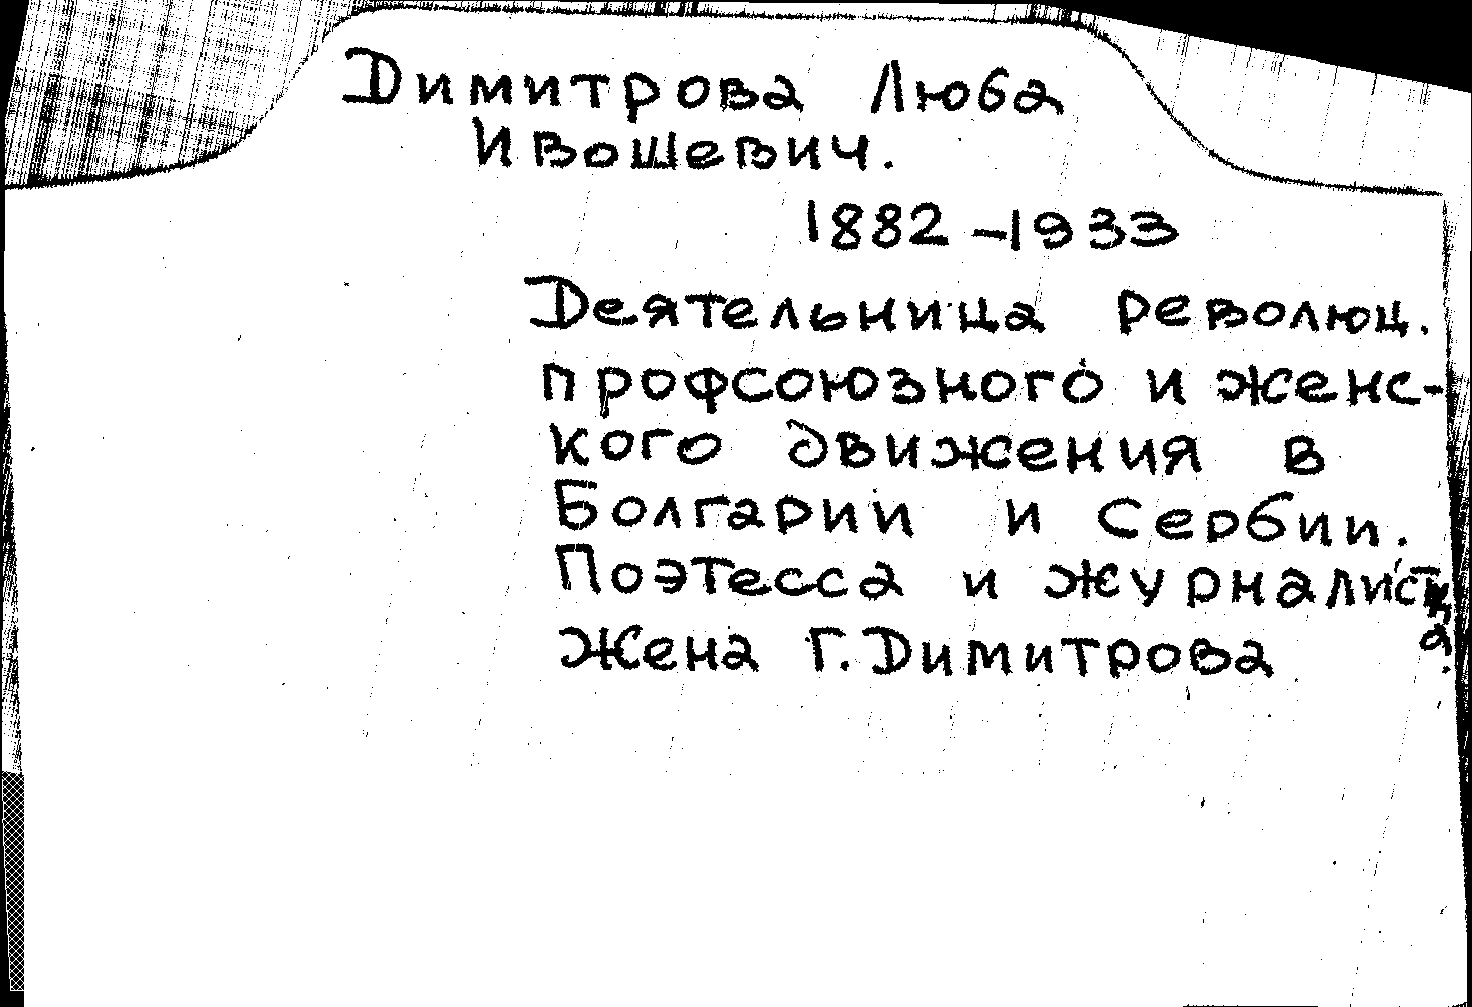 Димитрова Люба
Ивошевич.
1882-1933
Деятельница революц.
профсоюзного и женс-
кого движения в
Болгарии и Сербии.
Поэтесса и журналистка.
Жена Г. Димитрова